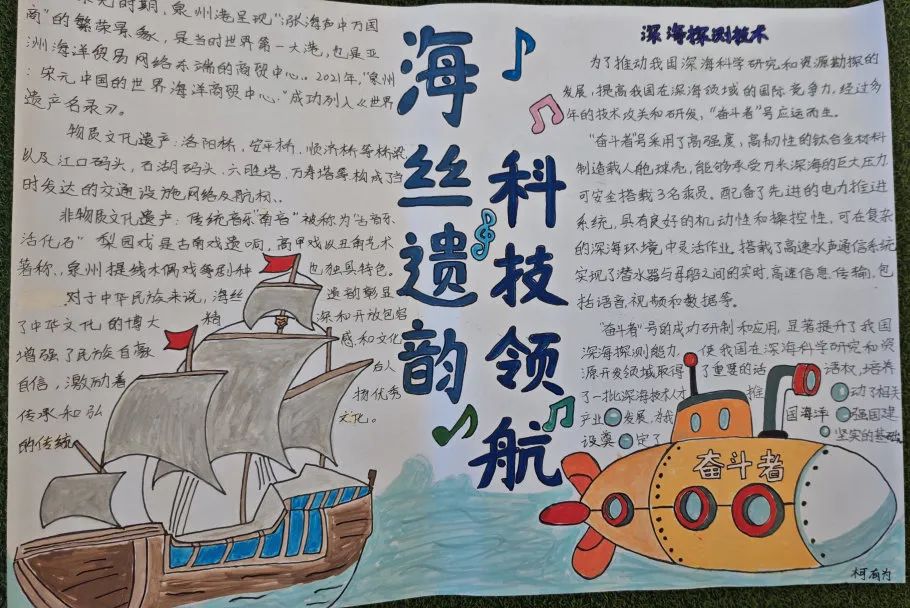 宋元时期，泉州港呈现"涨海声中万国
商"的繁荣景象，是当时世界第一大港，也是亚
洲海洋贸易网络东端的商贸中心。2021年，"泉州
：宋元中国的世界海洋商贸中心"成功列入《世界
遗产名录》。
物质文化遗产：洛阳桥、安平桥、顺济桥等桥梁
以及江口码头，石湖码头、六胜塔、万寿塔等构成了当
时发达的交通设施网络及航标、
非物质文化遗产：传统音乐"南音"被称为"古音乐
活化石"梨园戏是古南戏遗响，高甲戏以丑角艺术
著称，泉州提线木偶戏等剧种也独具特色。
对于中华民族来说，海丝遗韵彰显
了中华文化的博大精深和开放包容
增强了民族自豪感和文化
自信，激励着后人
传承和弘扬优秀
的传统文化。
海丝遗韵
科技领航
深海探测技术
为了推动我国深海科学研究和资源勘探的
发展，提高我国在深海领域的国际竞争力，经过多
年的技术攻关和研发，"奋斗者"号应运而生。
"奋斗者"号采用了高强度，高韧性的钛合金材料
制造载人舱球壳，能够承受万米深海的巨大压力
可安全搭载3名乘员。配备了先进的电力推进
系统，具有良好的机动性和操控性，可在复杂
的深海环境中灵活作业。搭载了高速水声通信系统
实现了潜水器与母船之间的实时，高速信息传输，包
括语音，视频和数据等。
"奋斗者"号的成功研制和应用，显著提升了我国
深海探测能力，使我国在深海科学研究和资
源开发领域取得了重要的话语权，培养
了一批深海技术人才推动了相关
产业发展，为我国海洋强国建
设奠定了坚实的基础
奋斗者
柯有为